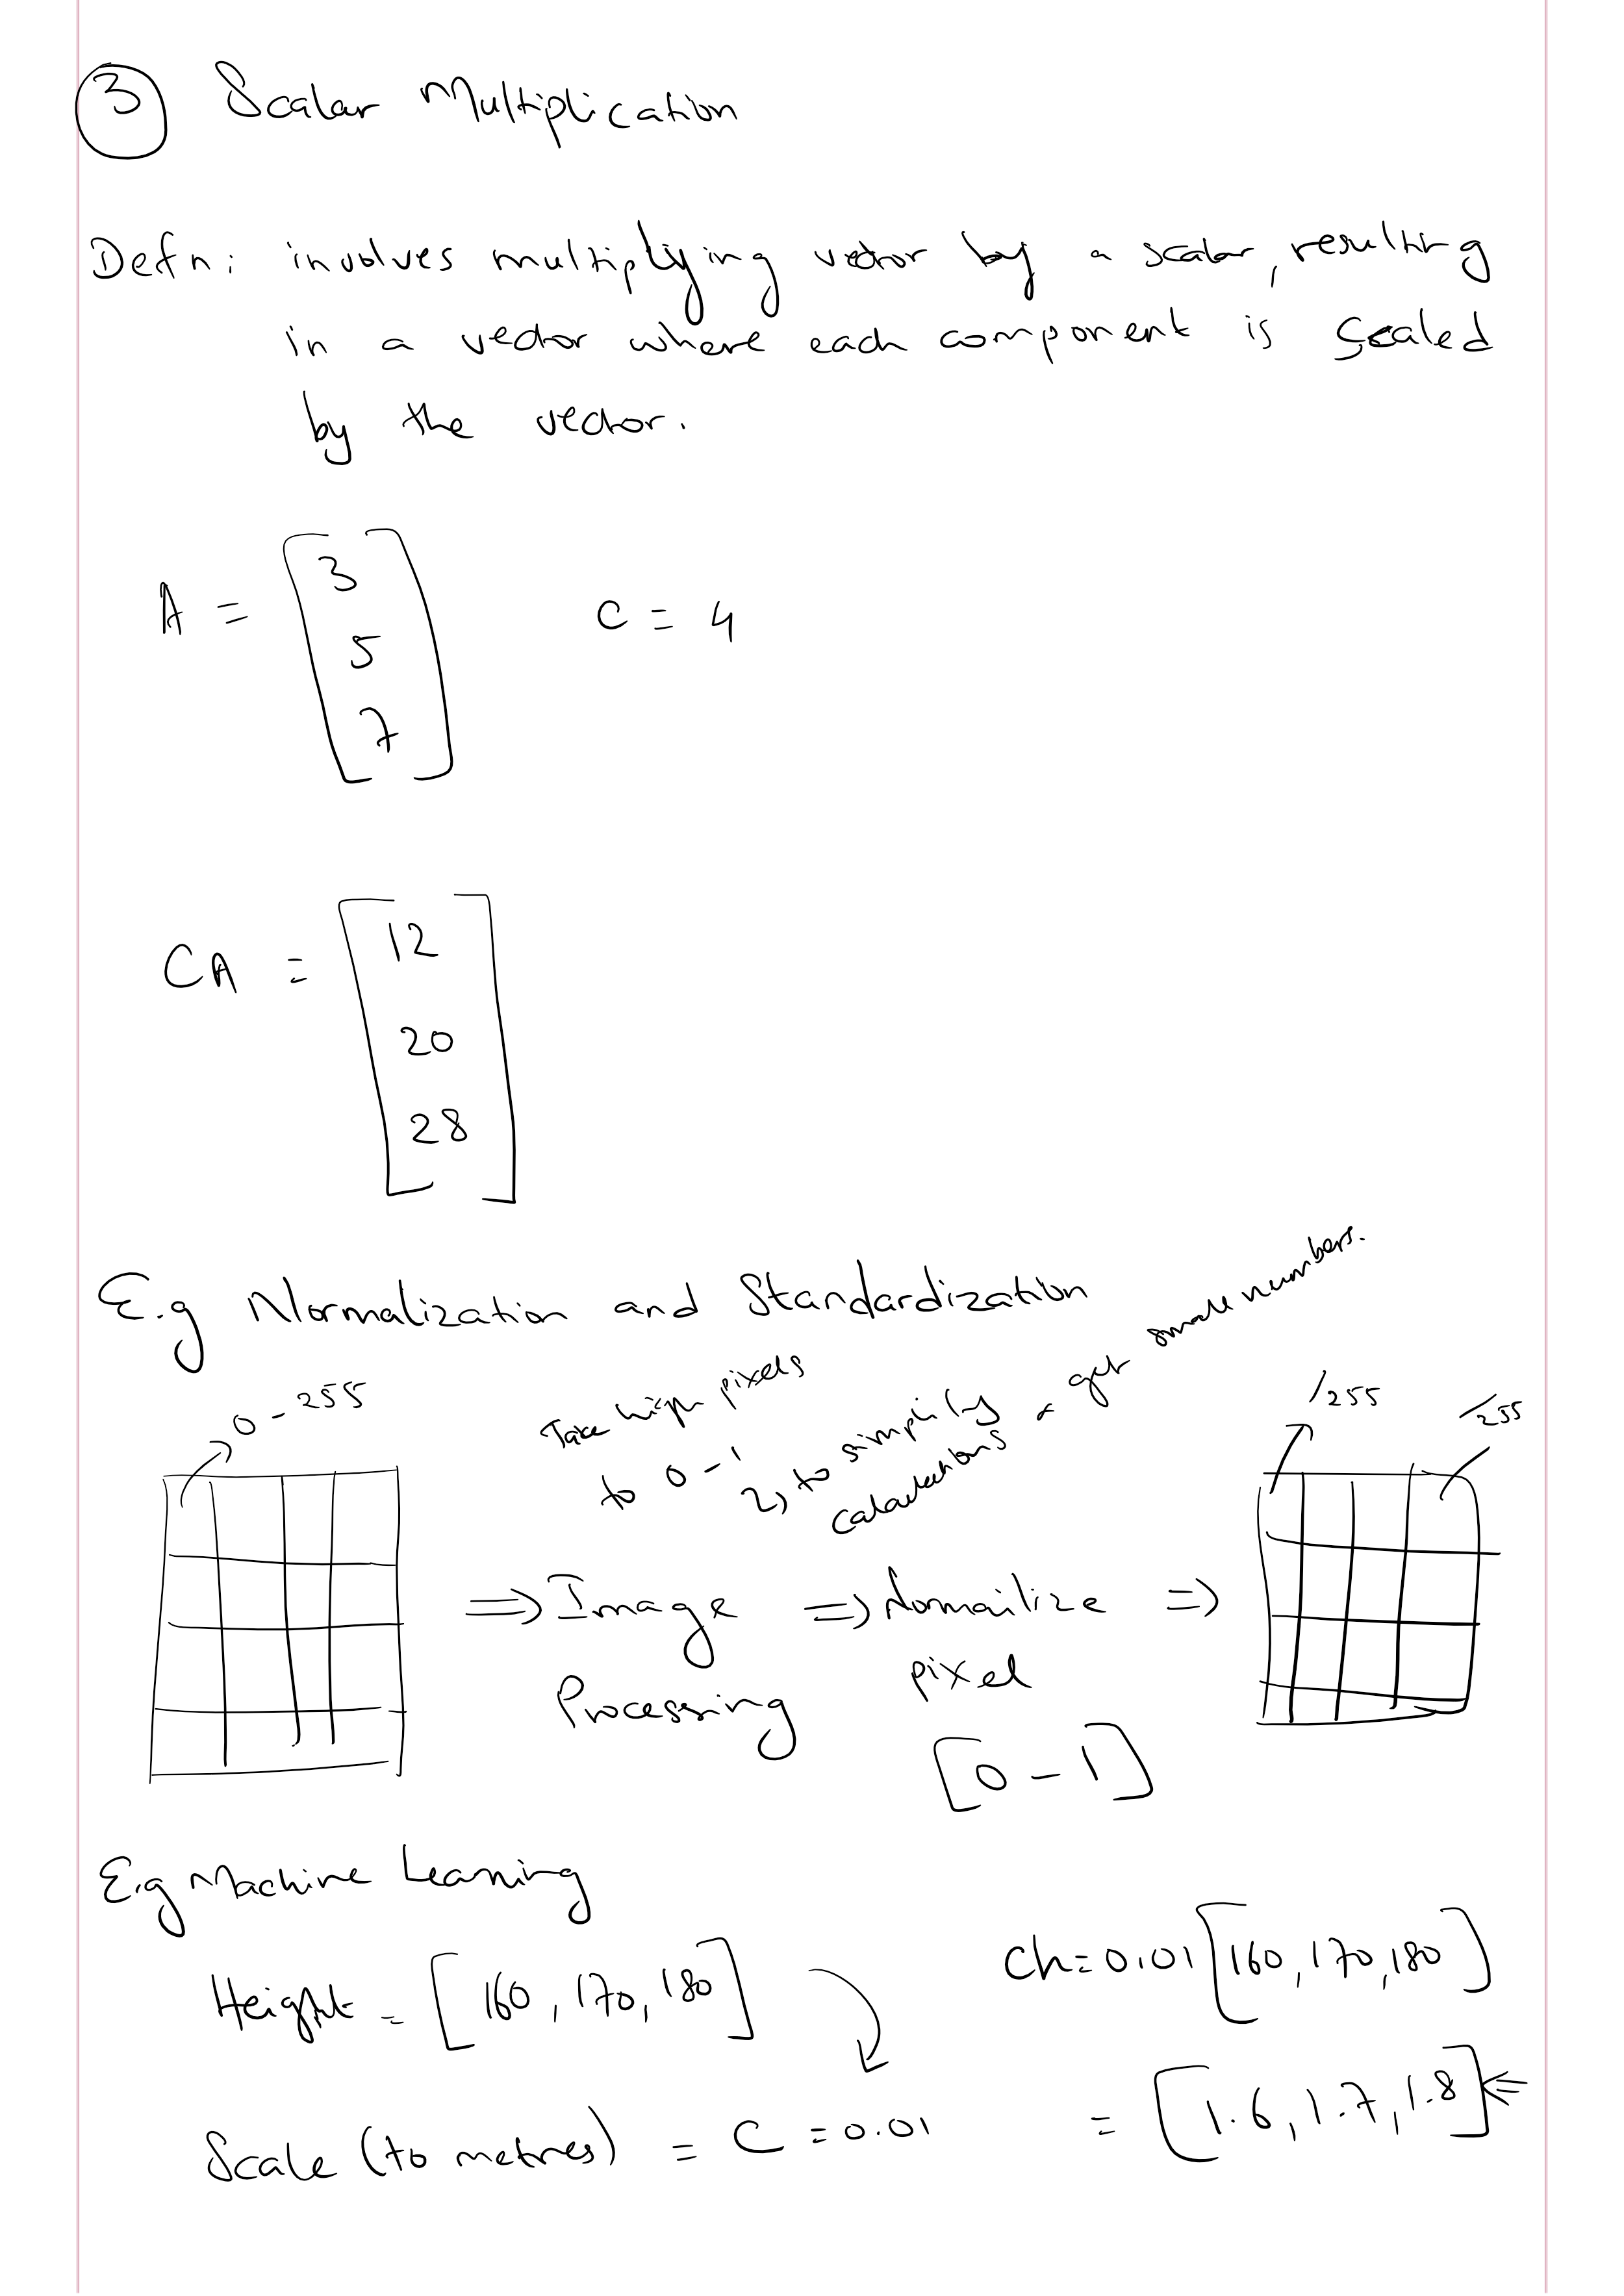 3 Scalar Multiplication
Defn: involves multiplying vector by a scalar, resulting
in a vector where each component is scaled
by the vector.
A = [3
5
7]
C = 4
CA = [12
20
28]
E.g Normalization and Standardization
0 - 255
Take high pixels
to 0 - 1
2) to simplify
calculations & get small numbers.
/255
/255
=> Image
Processing
=> Normailize
pixel
[0 - 1]
=>
E.g Machine Learning
Height = [160, 170, 180]
Scale (to metres) = C = 0.01
Ch = 0.01 [160, 170, 180]
= [1.6, 1.7, 1.8] <=